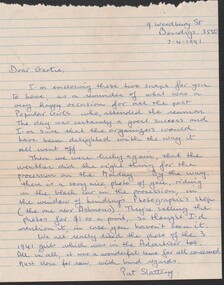 9 Woodbury St
Bendigo. 3550
7-4-1991
Dear Gertie,
I'm enclosing these two snaps for you
to have, as a reminder of what was a
very happy occasion for all the past
Popular Girls who attended the reunion
The day was certainly a great success and
I'm sure that the organizers would
have been delighted with the way it
all went off
Then we were lucky again, that the
weather did the right thing, for the
procession on the Monday. By the way,
there is a very nice photo of you, riding
in the black car in the procession, in
the window of Bendigo Photographic's shop
(the one near Ashmans). They're selling the
photos for $1 so a print, so thought I'd
mention it, in case you haven't seen it.
We all really liked the piece of the 3
1941 girls which was in the Advertiser too.
All in all, it was a wonderful time for all concerned
Must close for now, with kind regards
Pat Slattery